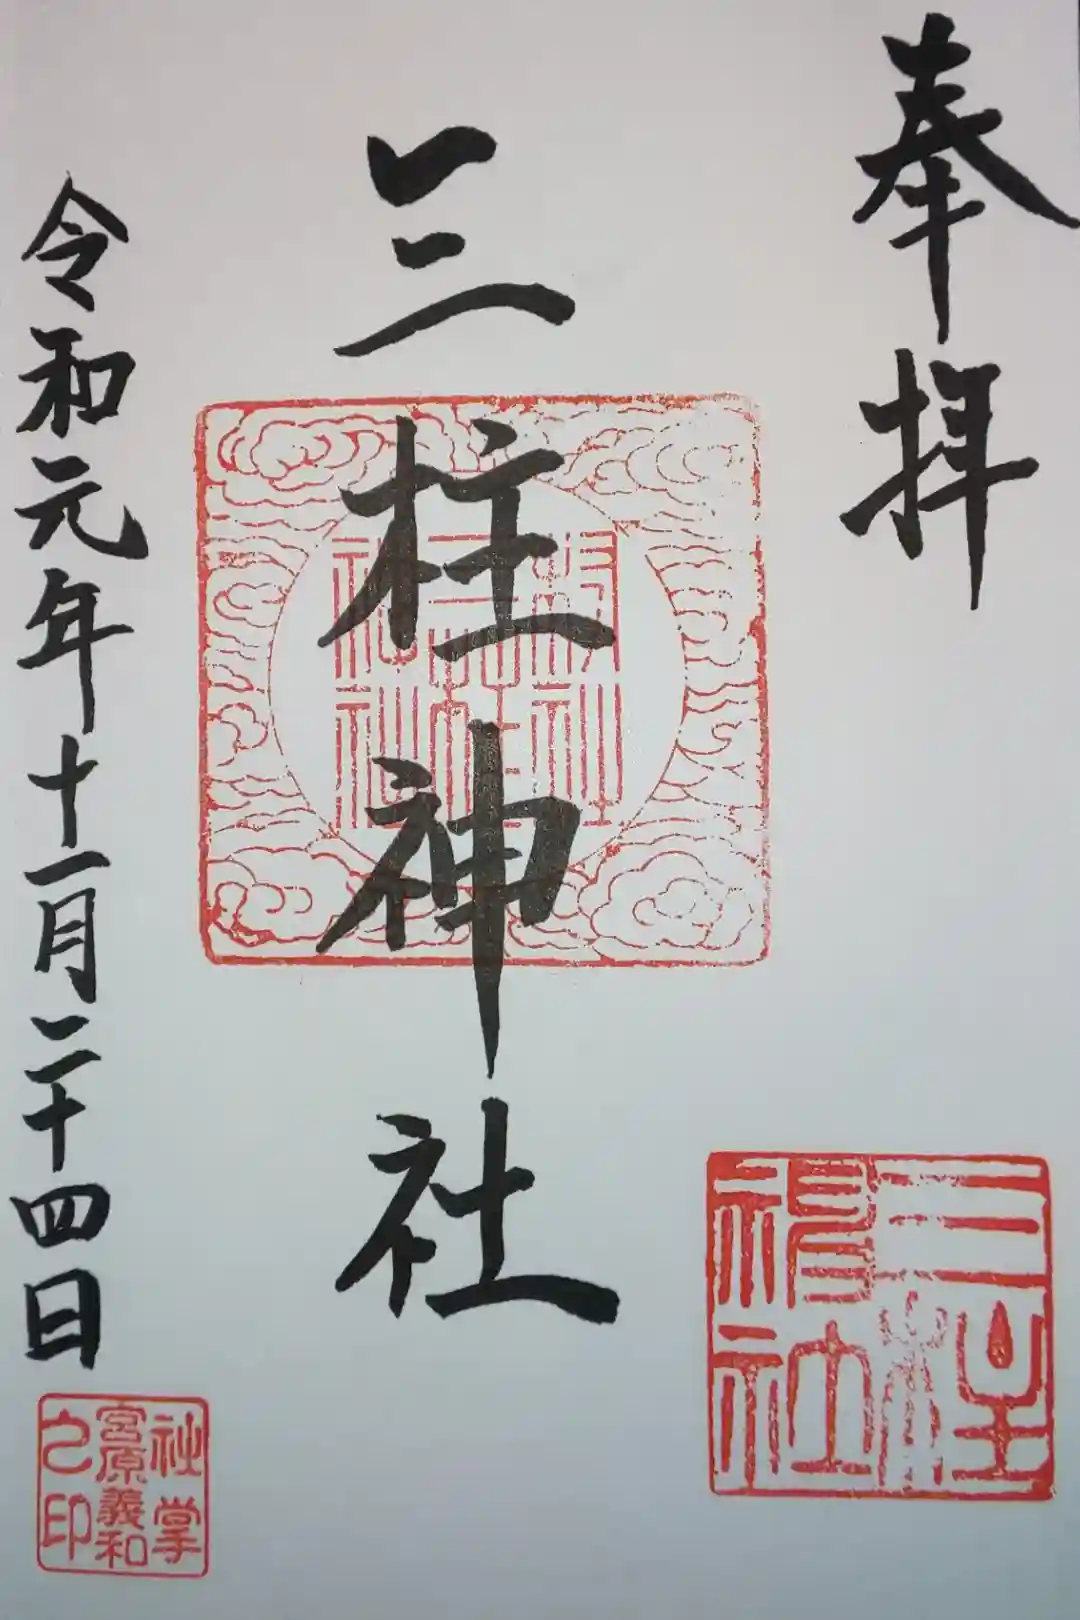 奉拝
三柱神社
令和元年十一月二十四日
三柱
神社
社掌
宮原義和
之印